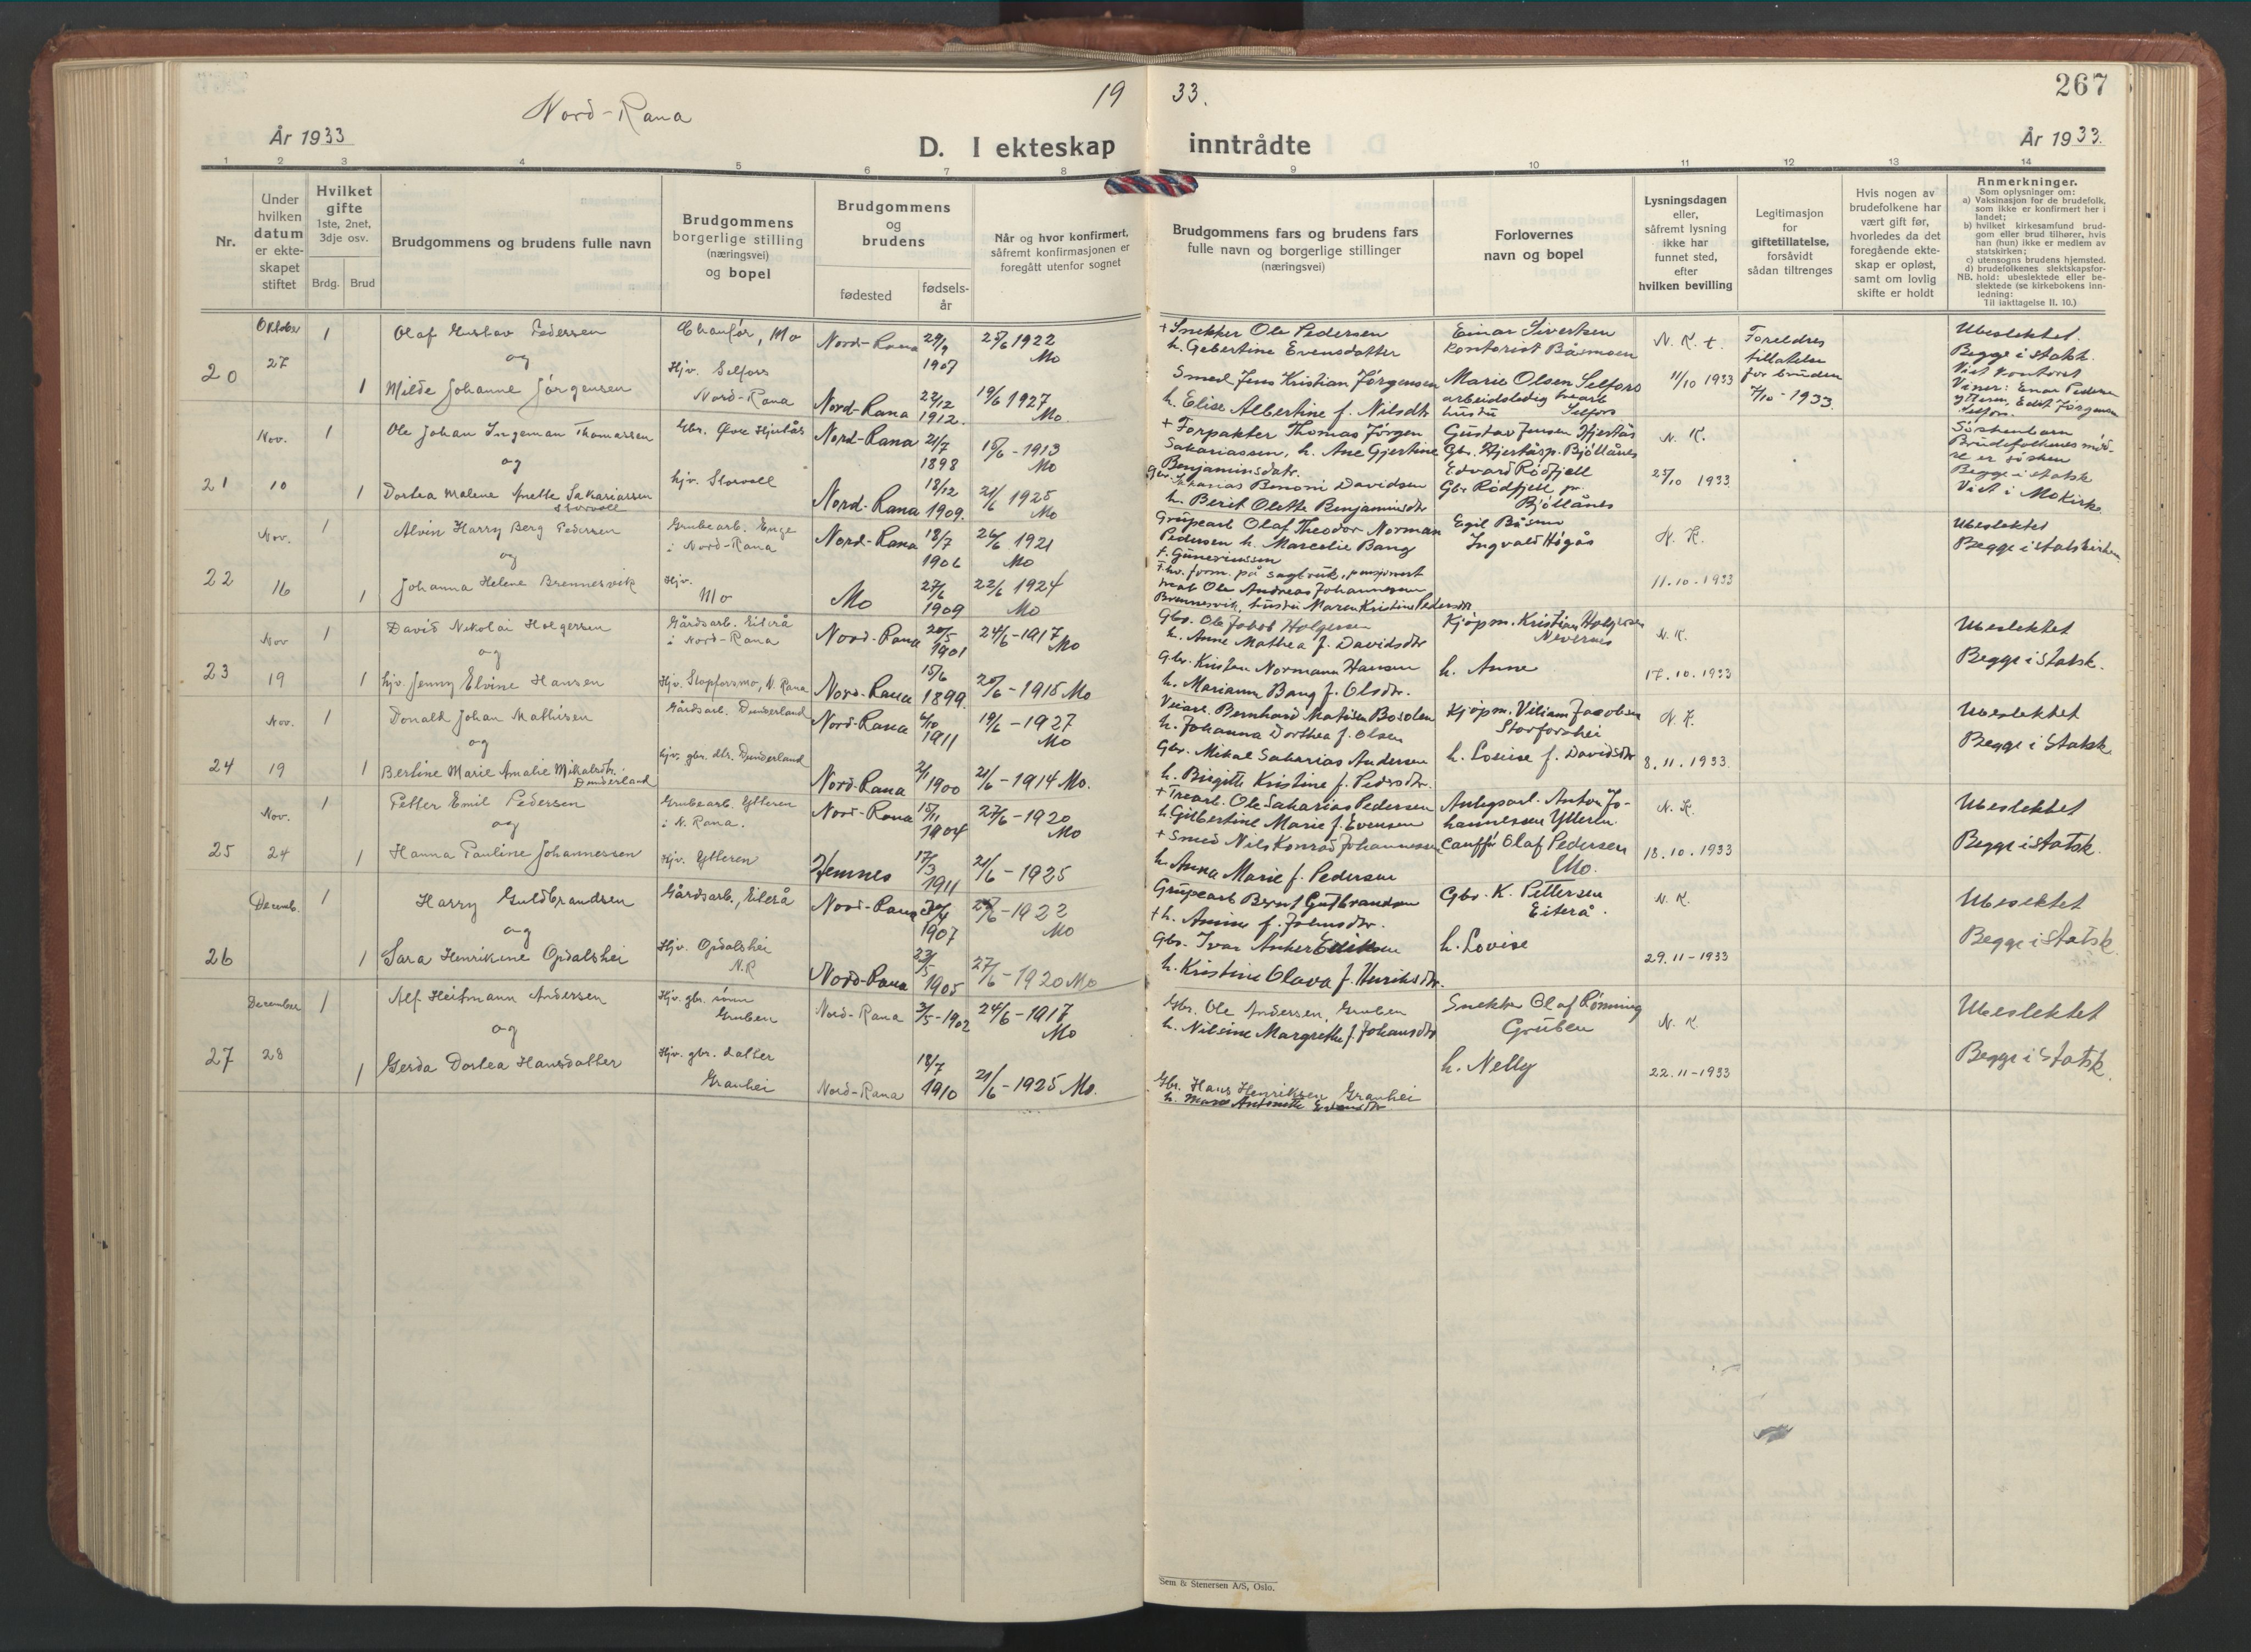 Nord-Rana
19
33.
267
År 1933
D. I ekteskap
inntrådte
År 1933.
1 2 3 4 5 6 7 8 9 10 11 12 13 14
Nr.
Under hvilken datum er ekteskapet stiftet
Hvilket gifte
1ste, 2net, 3dje osv.
Brdg. Brud
Brudgommens og brudens fulle navn
Brudgommens borgerlige stilling (næringsvei) og bopel
Brudgommens og brudens
fødested
fødsels-år
Når og hvor konfirmert, såfremt konfirmasjonen er foregått utenfor sognet
Brudgommens fars og brudens fars
fulle navn og borgerlige stillinger
(næringsvei)
Forlovernes navn og bopel
Lysningsdagen eller, såfremt lysning ikke har funnet sted, efter hvilken bevilling
Legitimasjon for giftetillatelse, forsåvidt sådan tiltrenges
Hvis nogen av brudefolkene har vært gift før, hvorledes da det foregående ekteskap er opløst, samt om lovlig skifte er holdt
Anmerkninger.
Som oplysninger om:
a) Vaksinasjon for de brudefolk, som ikke er konfirmert her i landet;
b) hvilket kirkesamfund brudgom eller brud tilhører, hvis han (hun) ikke er medlem av statskirken;
c) utensogns brudens hjemsted.
d) brudefolkenes slektskapsforhold: ubeslektede eller beslektede (se kirkebokens innledning:
NB.
Til iakttagelse II. 10.)
20
Oktober
27
1
Olaf Gustav Pedersen
og
1
Milde Johanne Jörgensen
Chauför, Mo
Hjv. Selfors
Nord-Rana
Nord-Rana 29/9 1907
25/6 1922 Mo
Nord-Rana 22/12 1912.
19/6 1927 Mo.
+ Snekker Ole Pedersen
h. Gebertine Evensdatter
Smed Jens Kristian Jörgensen
h. Elise Albertine f. Nilsdtr
Einar Sivertsen
kontorist Båsmoen
Marie Olsen Selfors
arbeidsledig
hustru Selfors
N. K. t.
11/10 1933
Foreldres
tillatelse
for bruden
7/10 - 1933
Ubeslektet.
Begge i statsk.
Viet kontoret
21
Nov.
10
1
Ole Johan Ingeman Thomassen
og
1
Dortea Malene Anette Sakariassen
Storvoll
Gbr. Øvre Hjertås
hjv. Storvoll
Nord-Rana 21/7 1898
15/6 - 1913 Mo
Nord-Rana 18/12 1909.
21/6 1925 Mo
+ Forpakter Thomas Jörgen
Sakariassen, h. Ane Gjertine
Benjaminsdatr.
Gbr. Sakarias Benoni Davidsen
h. Berit Olette Benjaminsdtr
Gustav Jensen Hjertås
Gbr. Hjertås p. Bjöllånes
Edvard Rödfjell
Gbr Rödfjell pr.
Bjöllånes
N. K.
25/10 1933
Söskenbarn
Brudefolkenes möd-
re er sösken
Begge i statsk
Viet i Mo Kirke
22
Nov.
16
1
Alvin Harry Berg Pedersen
og
1
Johanna Helene Brennesvik
Grubearb. Enge
i Nord-Rana
Hjv.
Mo
Nord-Rana 18/7 1906
26/6 1921 Mo
Mo 27/6 1909
22/6 1924 Mo
Grubearb Olaf Theodor Norman
Pedersen h. Marselie Bang
f. Gunerinssen
Fhv. form. på sagbruk, pensjonert
Ole Andreas Johannesen
Brennesvik, hustru Maren Kristine Pedersdtr
Egil Båsmo
Ingvald Högås
N. K.
11.10.1933
Ubeslektet
Begge i statskirken
23
Nov
19
1
David Nikolai Holgersen
og
1
hjv. Jenny Elvine Hansen
Gårdsarb. Eiterå
i Nord-Rana
Hjv. Stapforsmo, N. Rana
Nord-Rana 20/5 1901
24/6-1917 Mo
Nord-Rana 15/6 1899.
20/6-1915 Mo
Gbr. Ole Jakob Holgersen
h. Anne Mathea f. Davidsdtr
Gbr. Kristen Normann Hansen
h. Mariann Bang f. Olsdtr.
Kjöpm. Kristian Holgersen
Nevernes
h. Anne
N. K.
17.10.1933
Ubeslektet
Begge i Statsk.
24
Nov.
19
1
Donald Johan Mathisen
og
1
Bertine Marie Amalie Mikalsdtr.
Dunderland
Gårdsarb. Dunderland
hjv. gbr. dtr. Dunderland
Nord-Rana 6/10 1911
19/6-1927 Mo
Nord-Rana 2/1 1900
21/6-1914 Mo.
Veiarb. Bernhard Matisen Bosdlen
h. Johanna Dorthea f. Olsen
Gbr. Mikal Sakarias Andersen
h. Birgitte Kristine f. Pedersdtr.
Kjöpm. Viliam Jacobsen
Storforshei
h. Lovise f. Davidsdtr
N. K.
8.11.1933.
Ubeslektet
Begge i Statsk
25
Nov.
24
1
Petter Emil Pedersen
og
1
Hanna Pauline Johannessen
Grubearb. Ytteren
i N. Rana.
Hjv. Ytteren
Nord-Rana 15/11 1904
27/6-1920 Mo
Hemnes 17/3 1911
21/6-1925
+ Trearb. Ole Sakarias Pedersen
h Gilbertine Marie f. Evensen
+ Smed Nils Konrad Johannessen
h. Anna Marie f. Pedersen
Anlegsarb. Anton Jo-
hannessen Ytteren.
Cauffö Olaf Pedersen
Mo.
N. K.
18.10.1933
Ubeslektet
Begge i Statsk.
26
Decemb.
1
Harry Guldbrandsen
og
1
Sara Henrikine Opdalshei
Gårdsarb., Eiterå
Hjv. Opdalshei
N.R
Nord-Rana 1907
25/6-1922 Mo
Nord-Rana 23/5 1905
27/6-1920 Mo
Grubearb Bernt Gulbrandsen
+ h. Anine f. Johnsdtr.
Gbr. Ivar Anker Eriksen
h. Kristine Olava f. Henriksdtr.
Gbr. K. Pettersen
Eiterå.
h. Lovise
N. K.
29.11-1933
Ubeslektet
Begge i Statsk
27
December
28
1
Alf Heitmann Andersen
og
1
Gerda Dortea Hansdatter
Hjv. gbr. sönn
Gruben
Hjv. gbr. datter
Granhei
Nord-Rana 3/5-1902
24/6-1917 Mo
Nord-Rana 18/7 1910
21/6-1925 Mo.
Gbr. Ole Andersen, Gruben
h. Nilsine Margrethe f. Johansdtr
Gbr. Hans Henriksen Granhei
h. Maren Antonette
Snekker Olaf Rönning
Gruben
h. Nelly
N. K
22.11-1933
Ubeslektet
Begge i Statsk.
Sem & Stenersen A/S, Oslo.